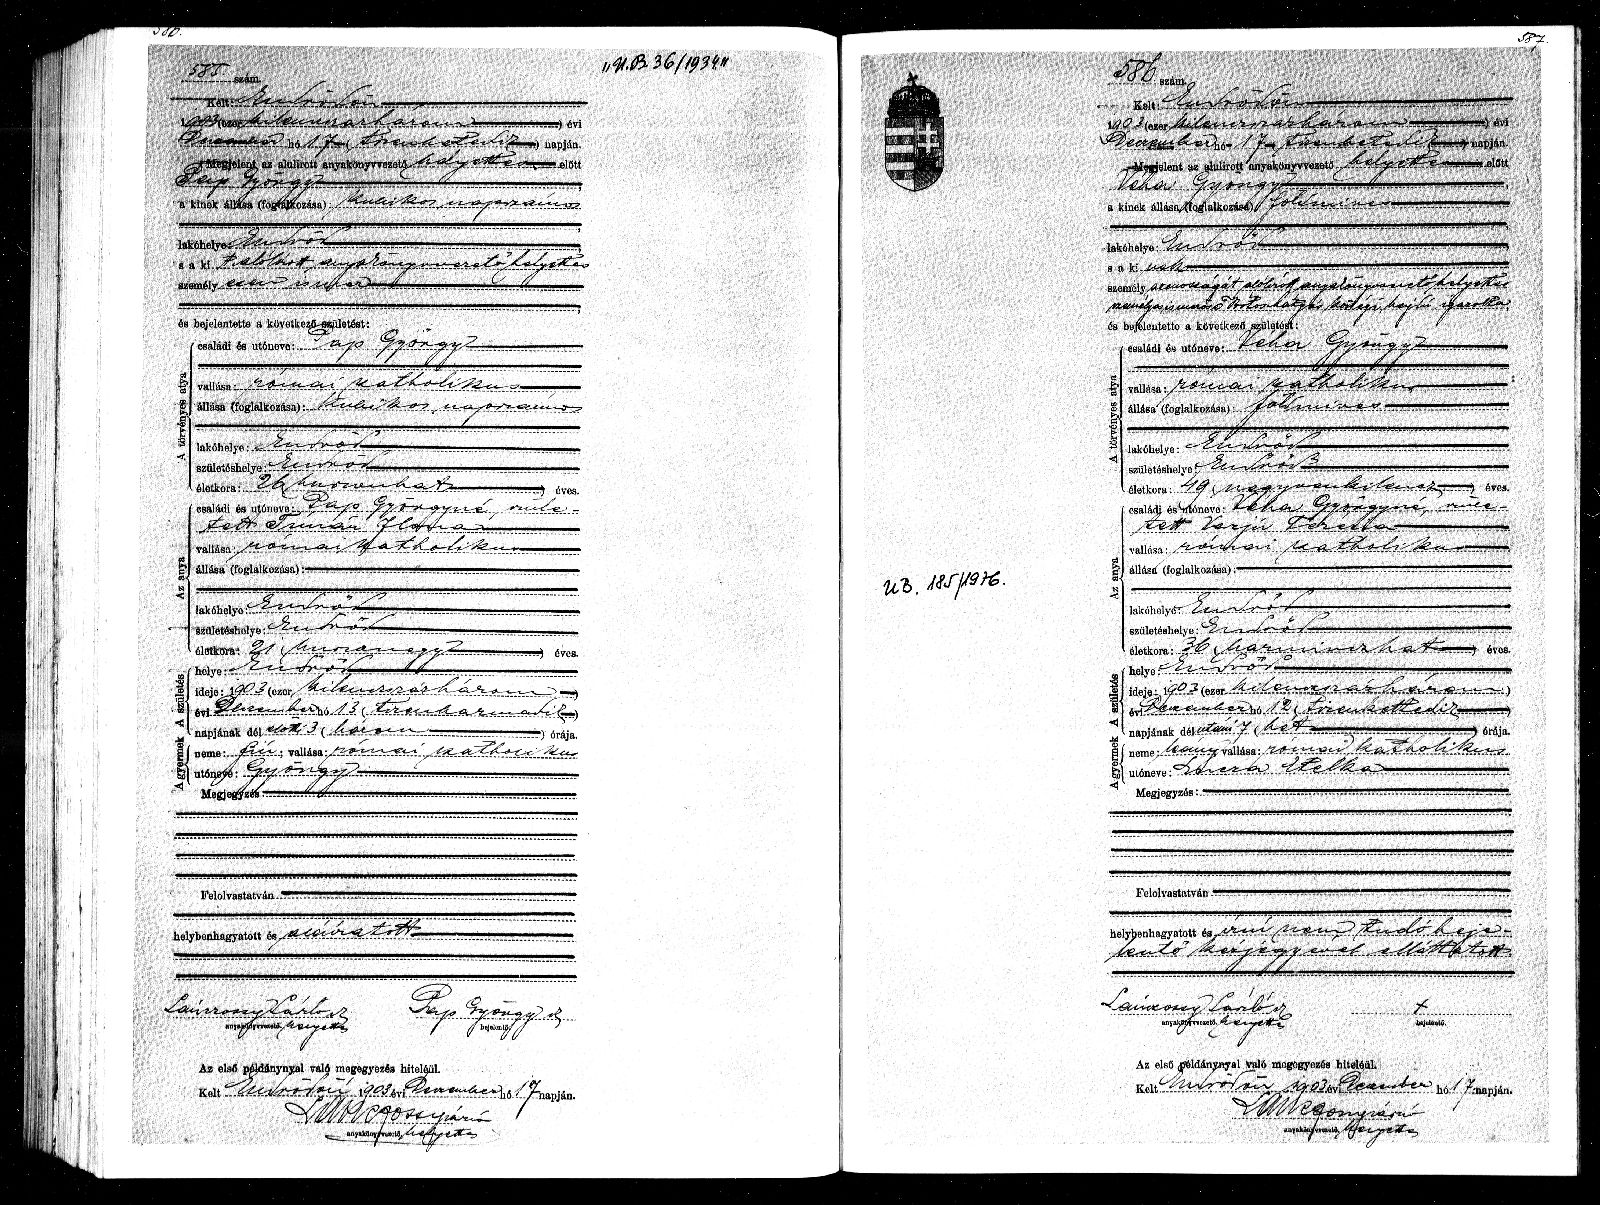 580.
585 szám.
"U.B. 36/1934"
Kelt: Endrődön
1903 (ezer kilenczszázhárom) évi
December hó 17 (tizenhetedik) napján.
Megjelent az alulirott anyakönyvvezető helyettes előtt
Pap György
a kinek állása (foglalkozása): kubikos napszámos
lakóhelye: Endrőd
s a kit alólirott anyakönyvvezető helyettes
személyesen ismer
és bejelentette a következő születést:
A törvényes atya
családi és utóneve: Pap György
vallása: római katholikus
állása (foglalkozása): kubikos napszámos
lakóhelye: Endrőd
születéshelye: Endrőd
életkora: 26 (huszonhat) éves.
Az anya
családi és utóneve: Pap Györgyné, szüle-
tett Ilona
vallása: római katholikus
állása (foglalkozása):
lakóhelye: Endrőd
születéshelye: Endrőd
életkora: 21 () éves.
A születés
helye: Endrőd
ideje: 1903 (ezer kilenczszázhárom)
évi December hó 13 (tizenharmadik)
napjának dél előtti 3 (három) órája.
A gyermek
neme: fiú vallása: római katholikus
utóneve: György
Megjegyzés
Felolvastatván
helybenhagyatott és aláiratott
Pap György
anyakönyvvezető, helyettes
bejelentő.
Az első példánynyal való megegyezés hiteléül.
Kelt Endrődön 1903 évi December hó 17 napján.
anyakönyvvezető, helyettes
587.
586 szám.
Kelt: Endrődön
1903 (ezer kilenczszázhárom) évi
December hó 17 (tizenhetedik) napján.
Megjelent az alulirott anyakönyvvezető helyettes előtt
Veha György
a kinek állása (foglalkozása) földmives
lakóhelye: Endrőd
s a ki nek
személyazonosságát alólirott anyakönyvvezető helyettes
és bejelentette a következő születést:
A törvényes atya
családi és utóneve: Veha György
vallása: római katholikus
állása (foglalkozása): földmives
lakóhelye: Endrőd
születéshelye: Endrőd
életkora: 49 (negyvenkilencz) éves.
Az anya
családi és utóneve: Veha Györgyné, szüle-
tett Varju Terézia
vallása: római katholikus
állása (foglalkozása):
UB. 185/1976.
lakóhelye: Endrőd
születéshelye: Endrőd
életkora: 36 (harminczhat) éves.
A születés
helye: Endrőd
ideje: 1903 (ezer kilenczszázhárom)
évi December hó 12 (tizenkettedik)
napjának dél utáni 7 (hét) órája.
A gyermek
neme: leány vallása: római katholikus
utóneve: Lucza Etelka
Megjegyzés:
Felolvastatván
helybenhagyatott és irni nem tudó beje-
lentő kézjegyével elláttatott
+
anyakönyvvezető, helyettes
bejelentő.
Az első példánynyal való megegyezés hiteléül.
Kelt Endrődön 1903 évi December hó 17 napján.
anyakönyvvezető, helyettes